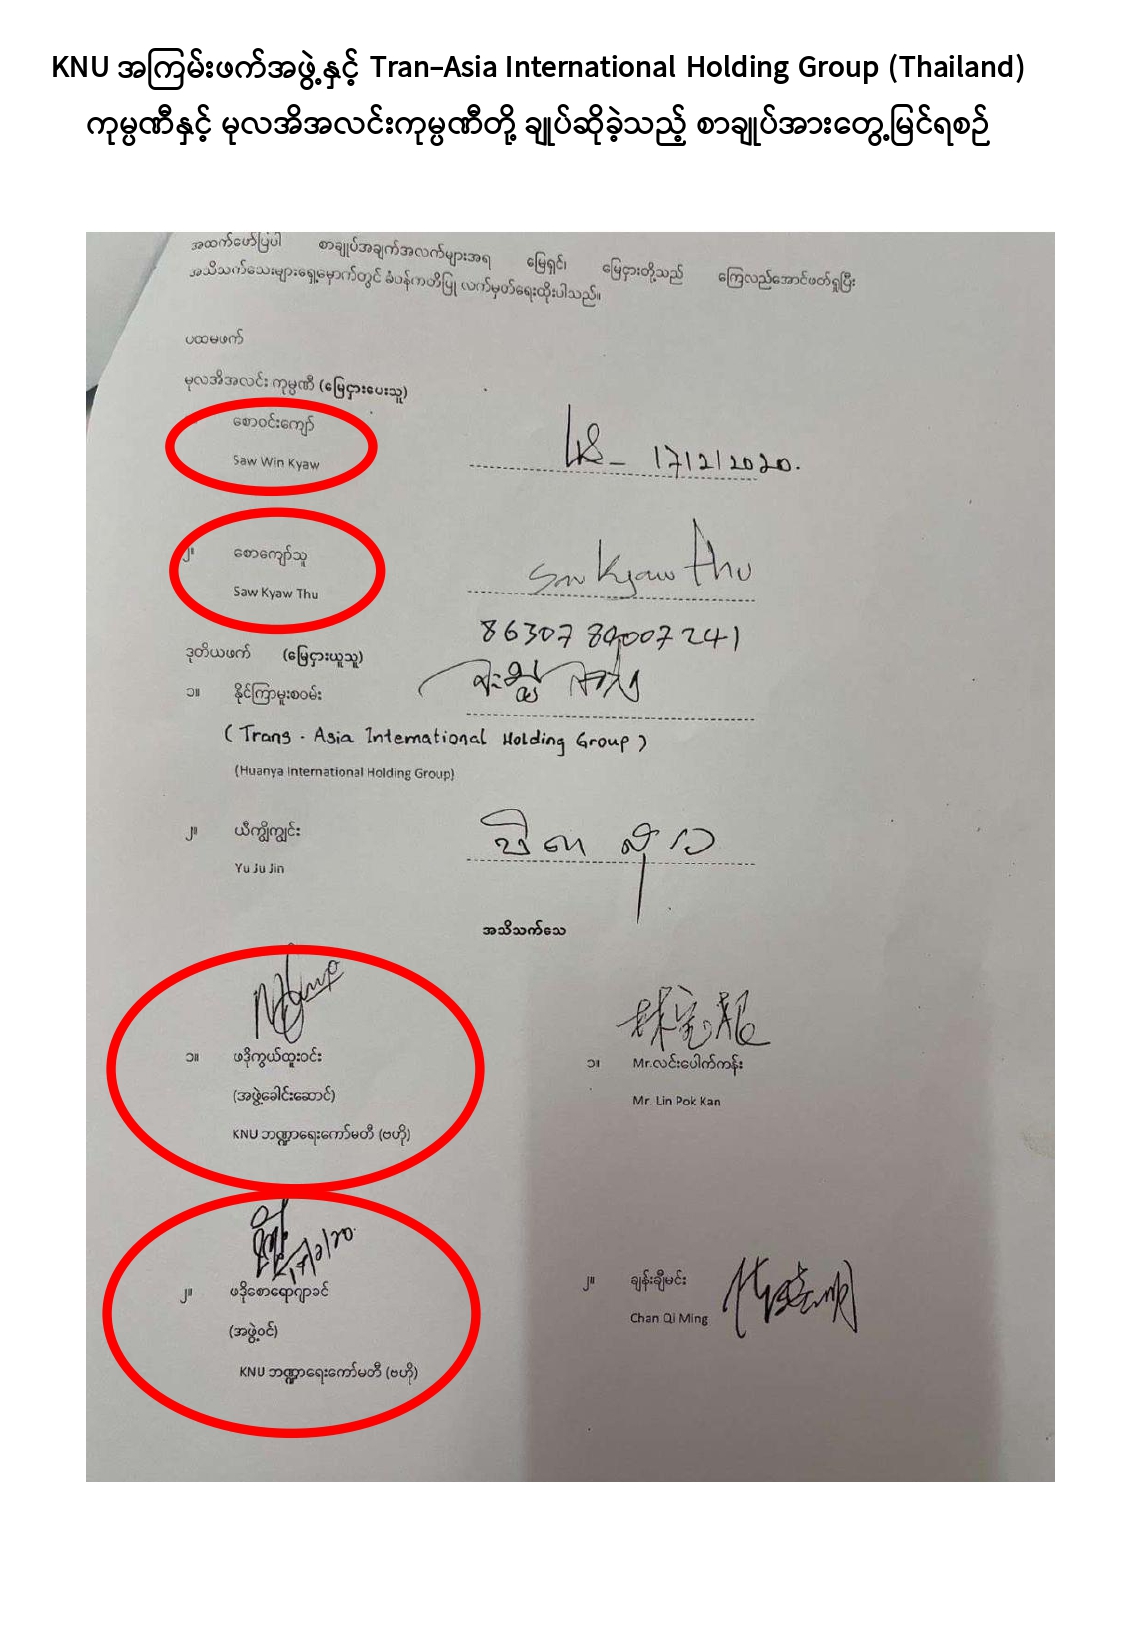 KNU အကြမ်းဖက်အဖွဲ့နှင့် Tran-Asia International Holding Group (Thailand)
ကုမ္ပဏီနှင့် မုလအိအလင်းကုမ္ပဏီတို့ ချုပ်ဆိုခဲ့သည့် စာချုပ်အားတွေ့မြင်ရစဉ်
အထက်ဖော်ပြပါ စာချုပ်အချက်အလက်များအရ မြေရှင်၊ မြေငှားတို့သည် ကြေလည်အောင်ဖတ်ရှုပြီး
အသိသက်သေးများရှေ့မှောက်တွင် ခံဝန်ကတိပြု လက်မှတ်ရေးထိုးပါသည်။
ပထမဖက်
မုလအိအလင်း ကုမ္ပဏီ (မြေငှားပေးသူ)
စောဝင်းကျော်
Saw Win Kyaw
17/12/2020.
၂။ စောကျော်သူ
Saw Kyaw Thu
Saw Kyaw Thu
8630789007241
ဒုတိယဖက် (မြေငှားယူသူ)
၁။ နိုင်ကြာမူးစဝမ်း
(Trans - Asia International Holding Group)
(Huanya International Holding Group)
၂။ ယီကျို့ကျွင်း
Yu Ju Jin
အသိသက်သေ
၁။ ဖဒိုကွယ်ထူးဝင်း
(အဖွဲ့ခေါင်းဆောင်)
KNU ဘဏ္ဍာရေးကော်မတီ (ဗဟို)
၁။ Mr.လင်းပေါက်ကန်း
Mr. Lin Pok Kan
၂။ ဖဒိုစောရော့ဂျာခင်
(အဖွဲ့ဝင်)
KNU ဘဏ္ဍာရေးကော်မတီ (ဗဟို)
၂။ ချန်းချီမင်း
Chan Qi Ming